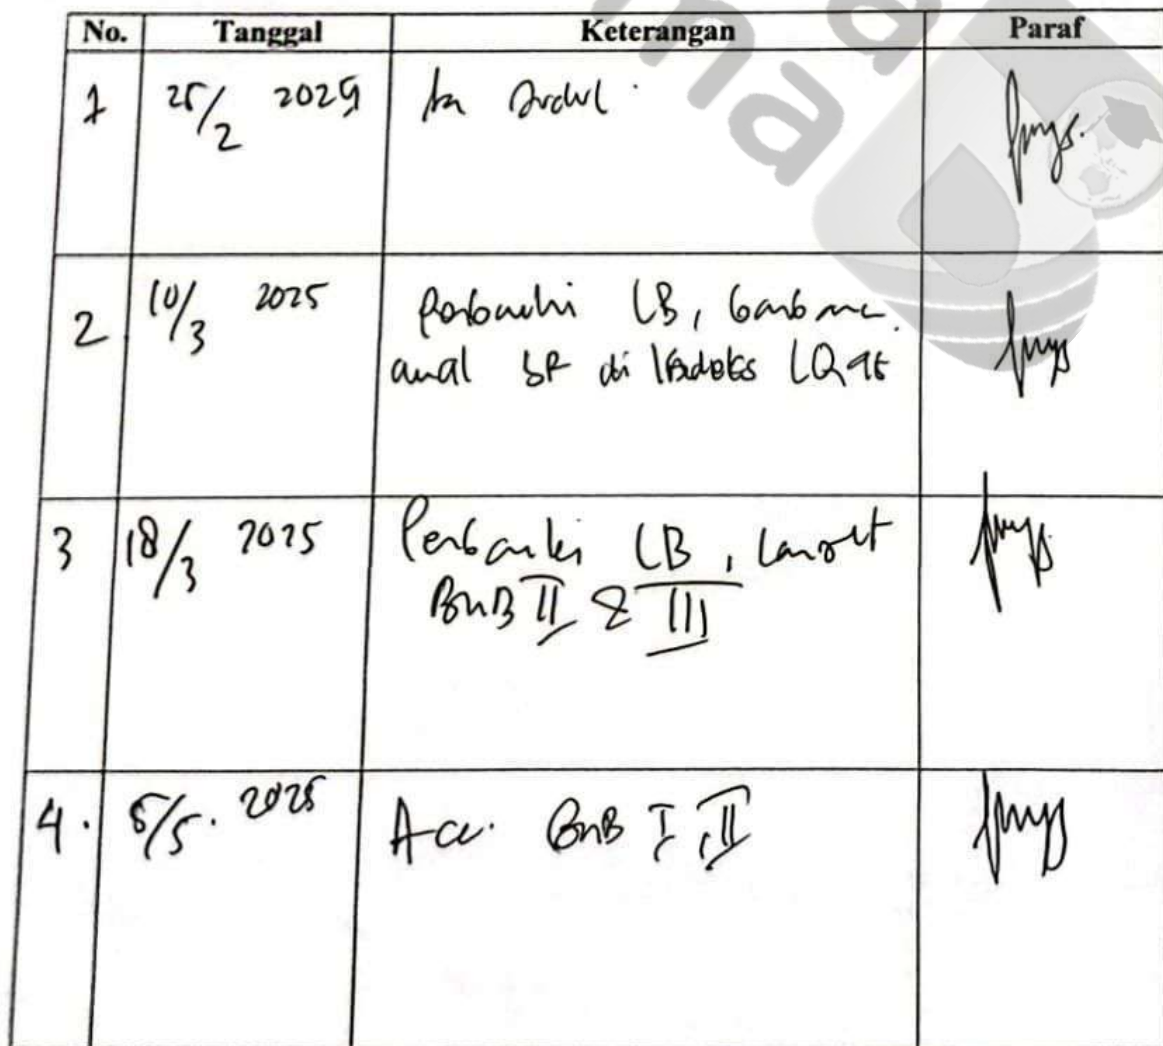 No. Tanggal Keterangan Paraf
1 25/2 2025 Judul
2 10/3 2025 Perbaiki LB,
di Indeks LQ45
3 18/3 2025 Perbaiki LB, Lanjut
BAB II & III
4. 5/5. 2025 Acc. BAB I, II